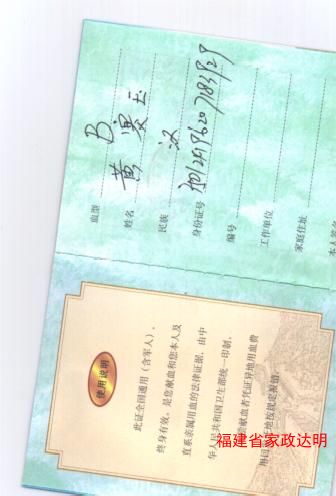 血型 B
姓名 黄 玉
民族 汉
身份证号
编号
工作单位
家庭住址
使用说明
此证全国通用（含军人），
终身有效。是您献血和您本人及
直系亲属用血的法律证据。由中
华人民共和国卫生部统一印制。
献血者凭证异地用血费
地按规定报销。
福建省家政达明